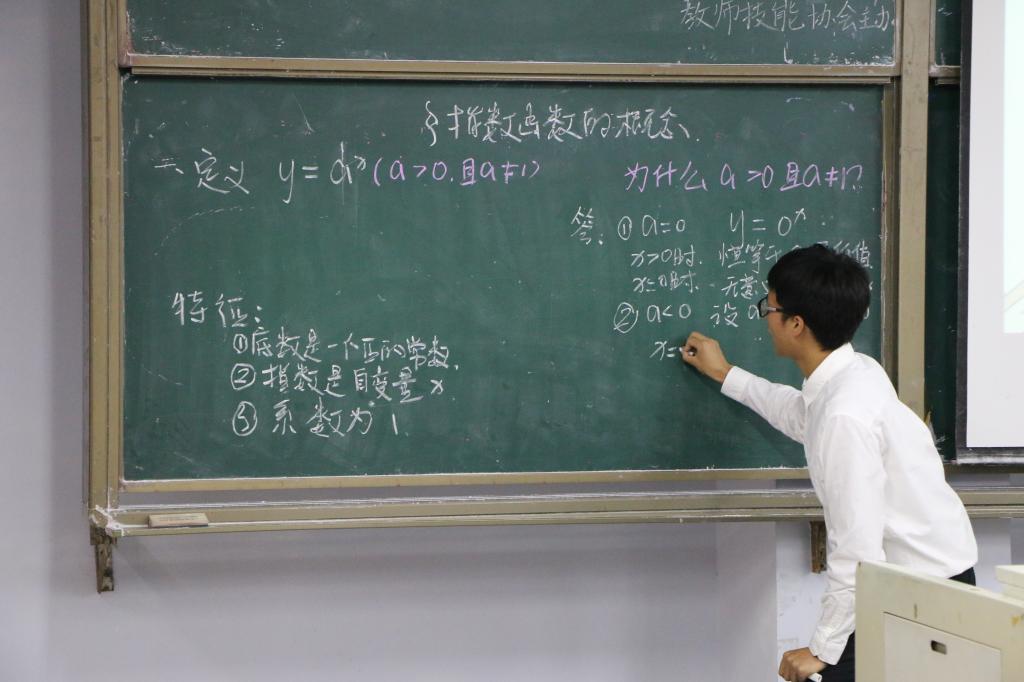 教师技能协会主办
§指数函数的概念
二、定义 y=aˣ(a>0.且a≠1)
为什么 a>0且a≠1?
答: ①a=0 y=0ˣ
x>0时. 恒等于
x≤0时. 无意
②a<0 设a
x=
特征:
①底数是一个正的常数.
②指数是自变量x
③系数为1.